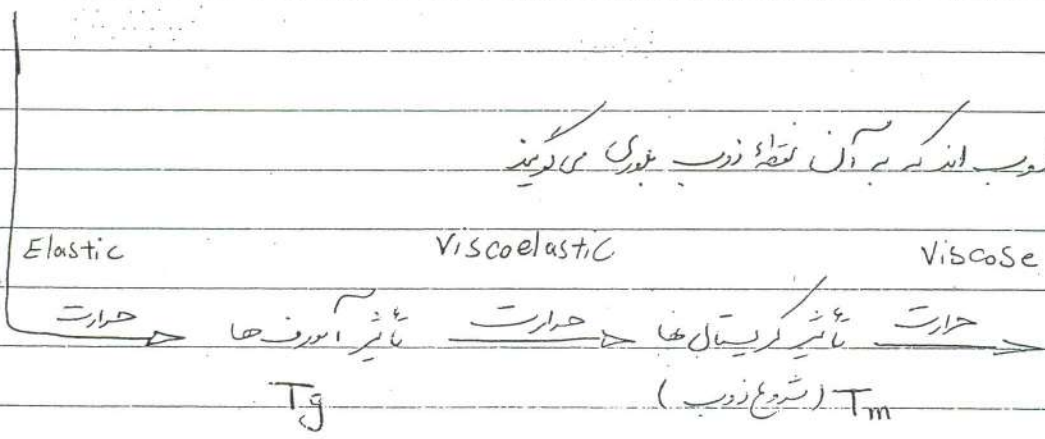 اند که به آن نقطهٔ ذوب بلوری می گویند
Elastic Viscoelastic Viscose
حرارت تأثیر آمورف ها حرارت تأثیر کریستال ها حرارت
Tg Tm (شروع ذوب)